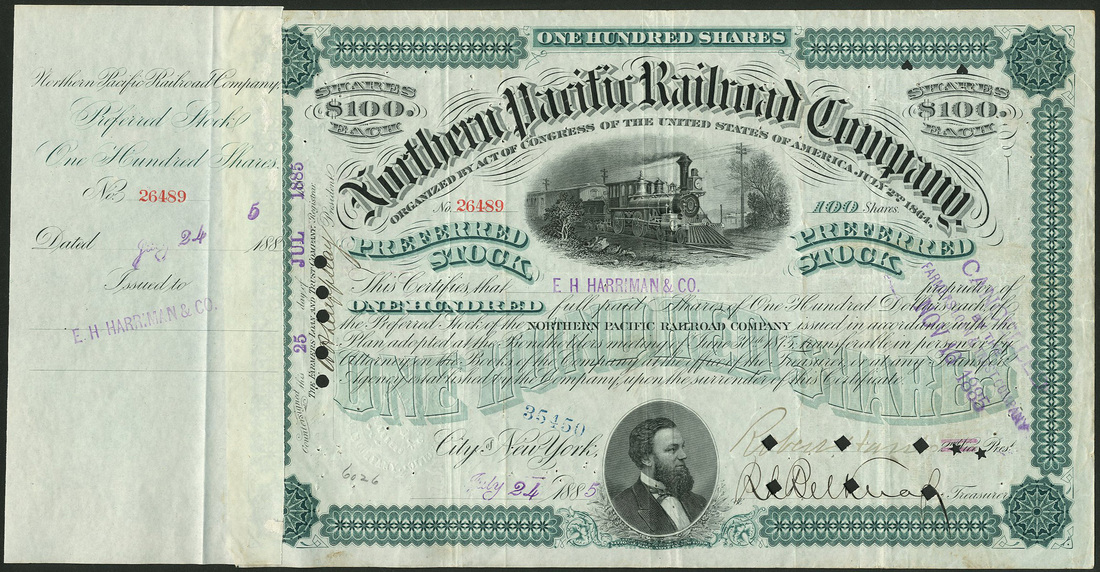 Northern Pacific Railroad Company.
Preferred Stock
One Hundred Shares.
No. 26489
5
Dated July 24 188
Issued to
E. H HARRIMAN & CO.
Countersigned this 25 day of JUL 1885
THE FARMERS LOAN AND TRUST COMPANY, Registrar.
President
ONE HUNDRED SHARES
SHARES $100. EACH
SHARES $100. EACH
Northern Pacific Railroad Company,
ORGANIZED BY ACT OF CONGRESS OF THE UNITED STATES OF AMERICA, JULY 2ND 1864.
No. 26489
100 Shares.
PREFERRED STOCK
PREFERRED STOCK
This Certifies, that E H HARRIMAN & CO. proprietor of
ONE HUNDRED full paid Shares of One Hundred Dollars each of
the Preferred Stock of the NORTHERN PACIFIC RAILROAD COMPANY issued in accordance with the
Plan adopted at the Bondholders meeting June 30th 1875, transferable in person or by
Attorney on the Books of the Company at the office of the Treasurer or at any Transfer
Agency established by the Company, upon the surrender of this Certificate.
ONE HUNDRED SHARES
CANCELLED
FARMERS LOAN & TRUST COMPANY
NOV 10 1885
35450
City of New York,
July 24 1885
6026
Robert Harris Vice Pres.
R. L. Belknap Treasurer